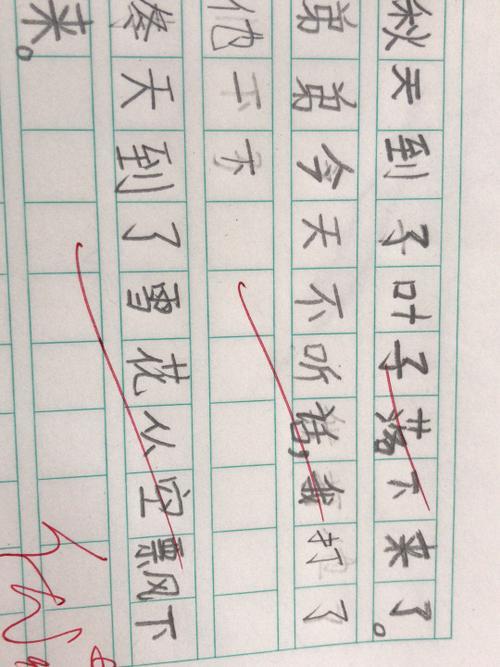 秋天到子叶子落下来了。
弟弟今天不听话,我打了
他一下
冬天到了雪花从空飘下
来。